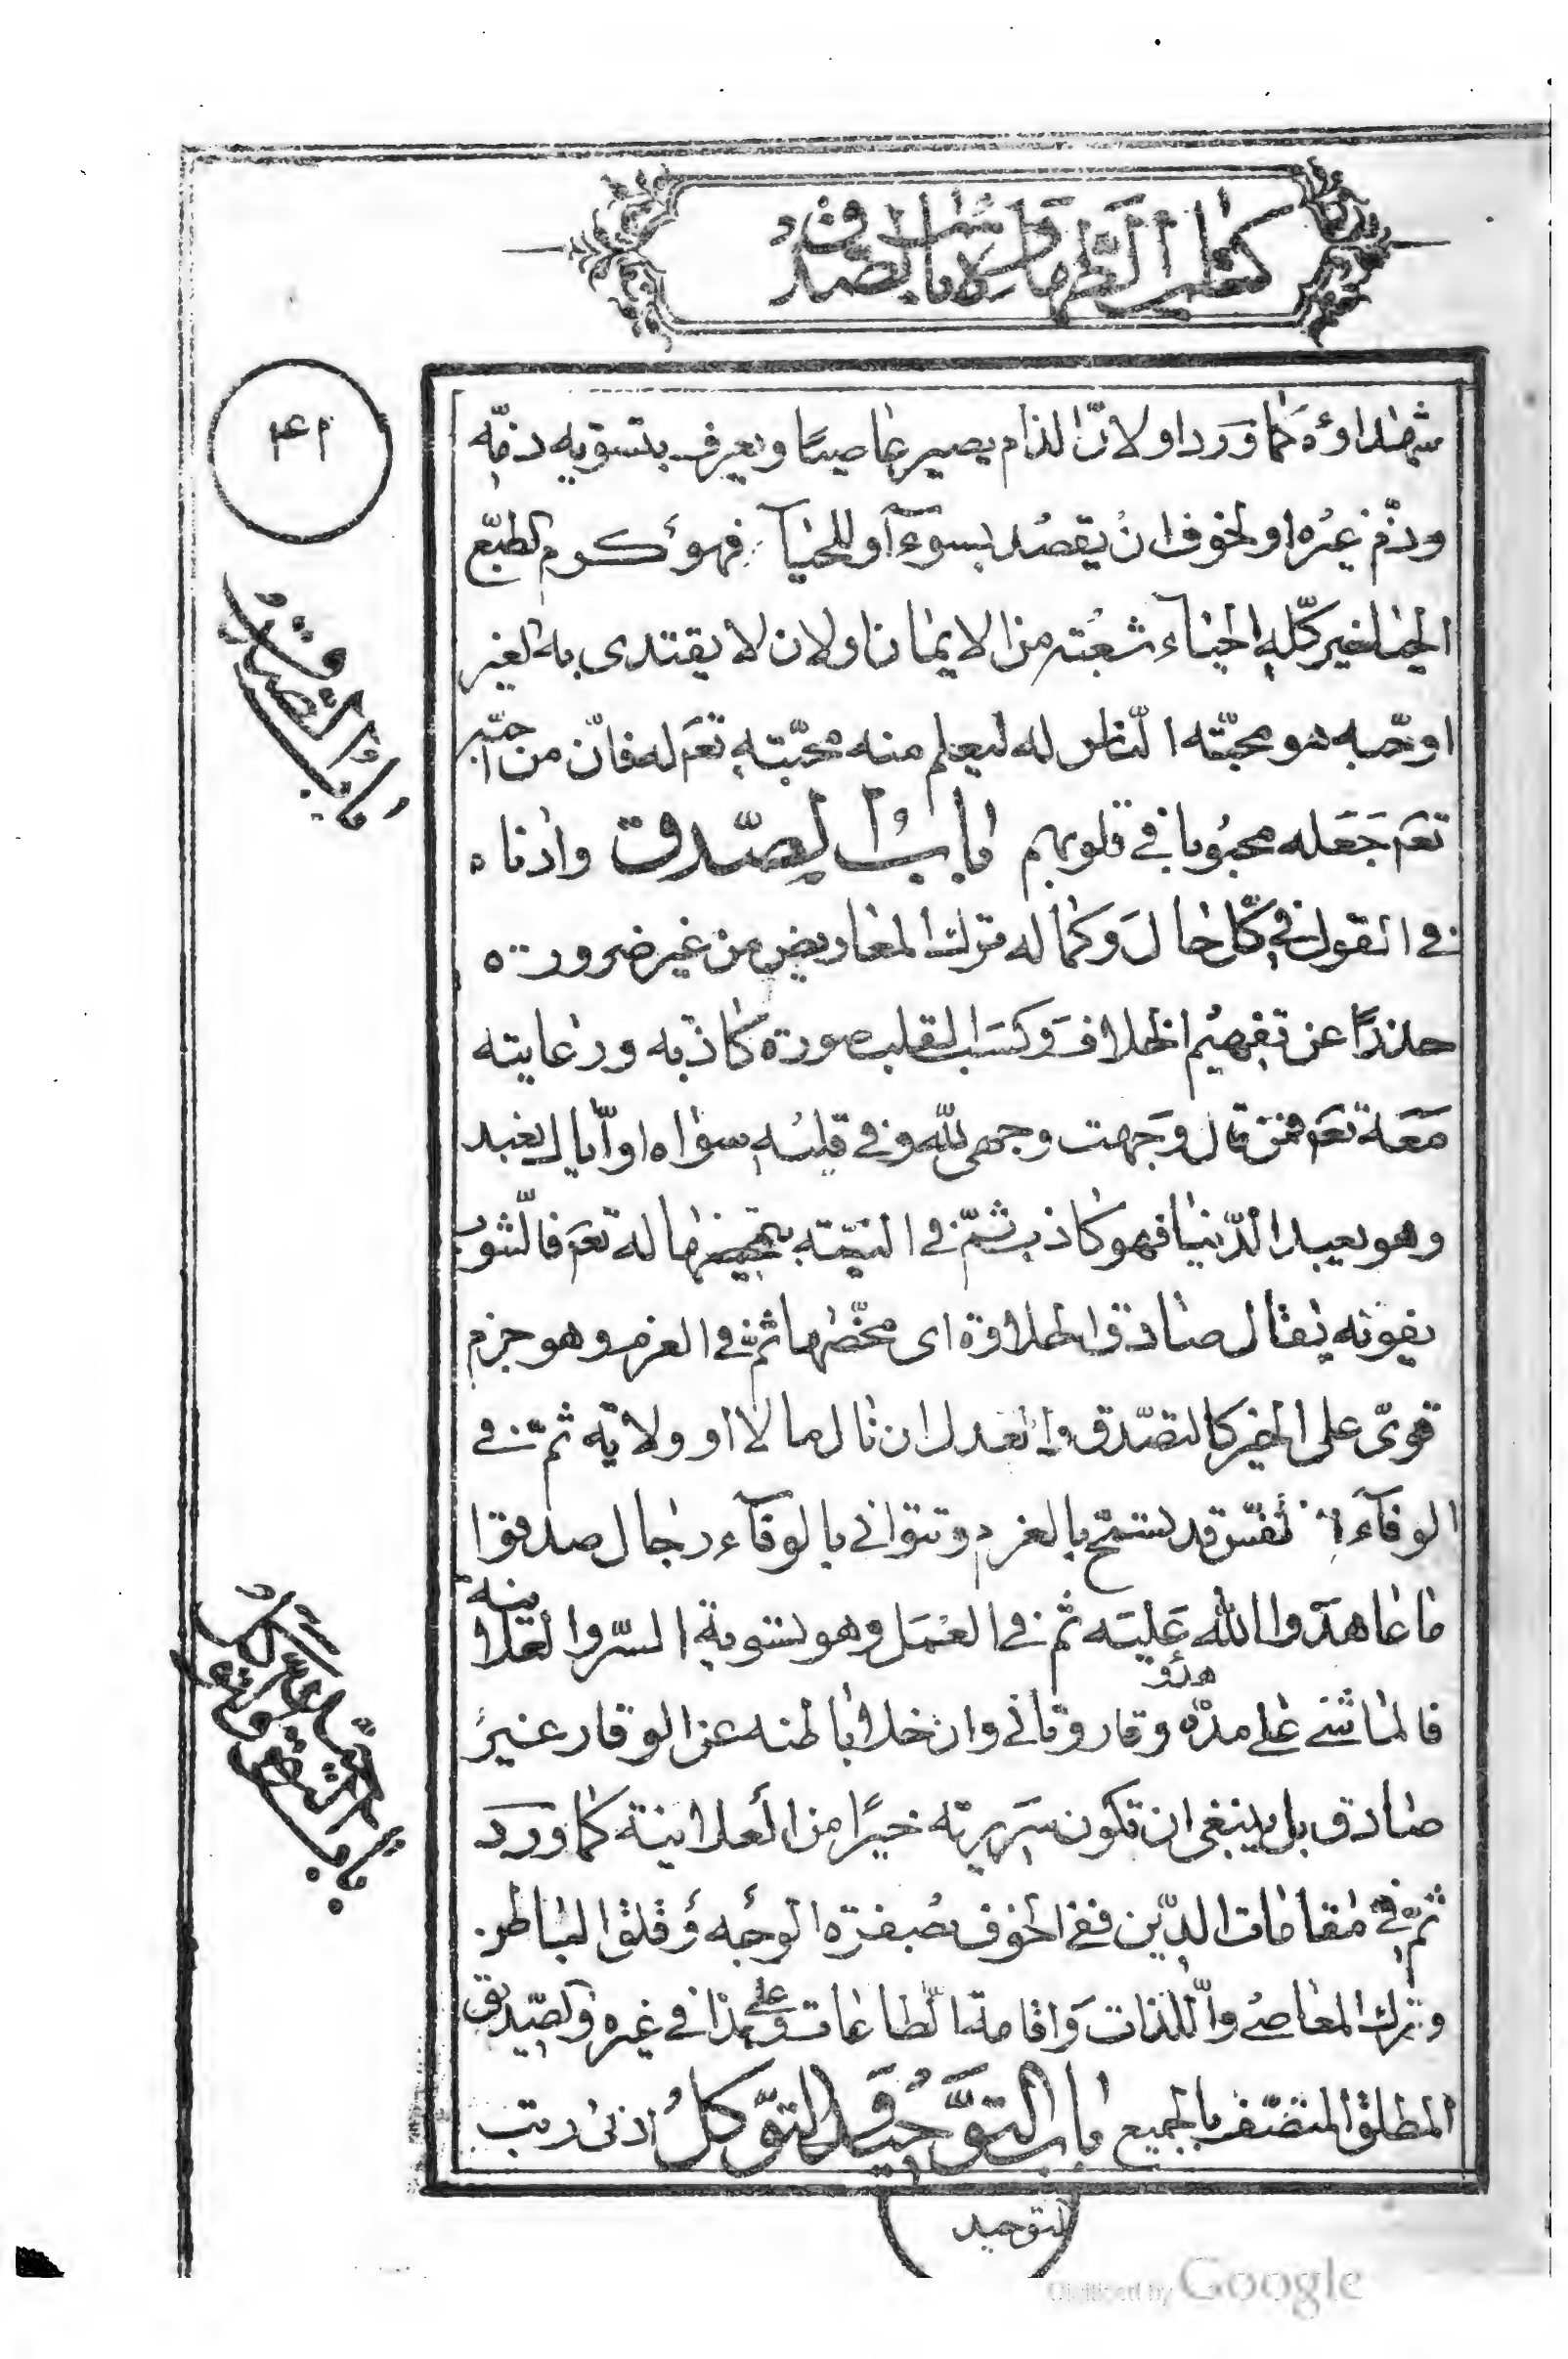 كتاب الطهارة باب الصدق
۲۴۱
شهداؤه كما ورد او لانّ الذام يصير عاصيا ويعرف بتسويه ذمّه
وذمّ غيره او لخوف ان يقصد بسوء او للحياء فهو كرم الطبع
الحياء خير كلّه الحياء شعبة من الايمان او لان لا يقتدى به الغير
او حبّه هو محبّته النّاس له ليعلم منه محبّته تعم له فانّ من احبّه
تعم جعله محبوبا في قلوبهم باب الصّدق وادناه
في القول في كلّ حال وكماله ترك المعاريض من غير ضرورة
حذرًا عن تفهيم الخلاف وكسب القلب صورة كاذبه ورعايته
معه تعم فمن قال وجهت وجهى للّه وفي قلبه سواه او ايّاك نعبد
وهو يعبد الدّنيا فهو كاذب ثمّ في النيّة بتمحيضها له تعم فالشوب
يفوته يقال صادق الحلاوة اى محضها ثمّ في العزم وهو جزم
قوىّ على الخير كالتصدّق والعدل ان نال مالا او ولاية ثمّ في
الوفاء فالنفس قد تسمح بالعزم وتتوانى بالوفاء رجال صدقوا
ما عاهدوا الله عليه ثم في العمل وهو تسوية السّر والعلانية
فالماشى على هدؤ وقار وتانى وان خلا باطنه عن الوقار غير
صادق بل ينبغى ان تكون سريرته خيرًا من العلانية كما ورد
ثمّ في مقامات الدّين ففى الخوف بصفرة الوجه وقلق الباطن
وترك المعاصى واللذات واقامة الطاعات وعلى هذا في غيره والصّديق
المطلق المتّصف بالجميع باب التوحيد والتوكل ادنى رتب
التوحيد
باب الصدق
باب التوحيد والتوكل
Digitized by Google